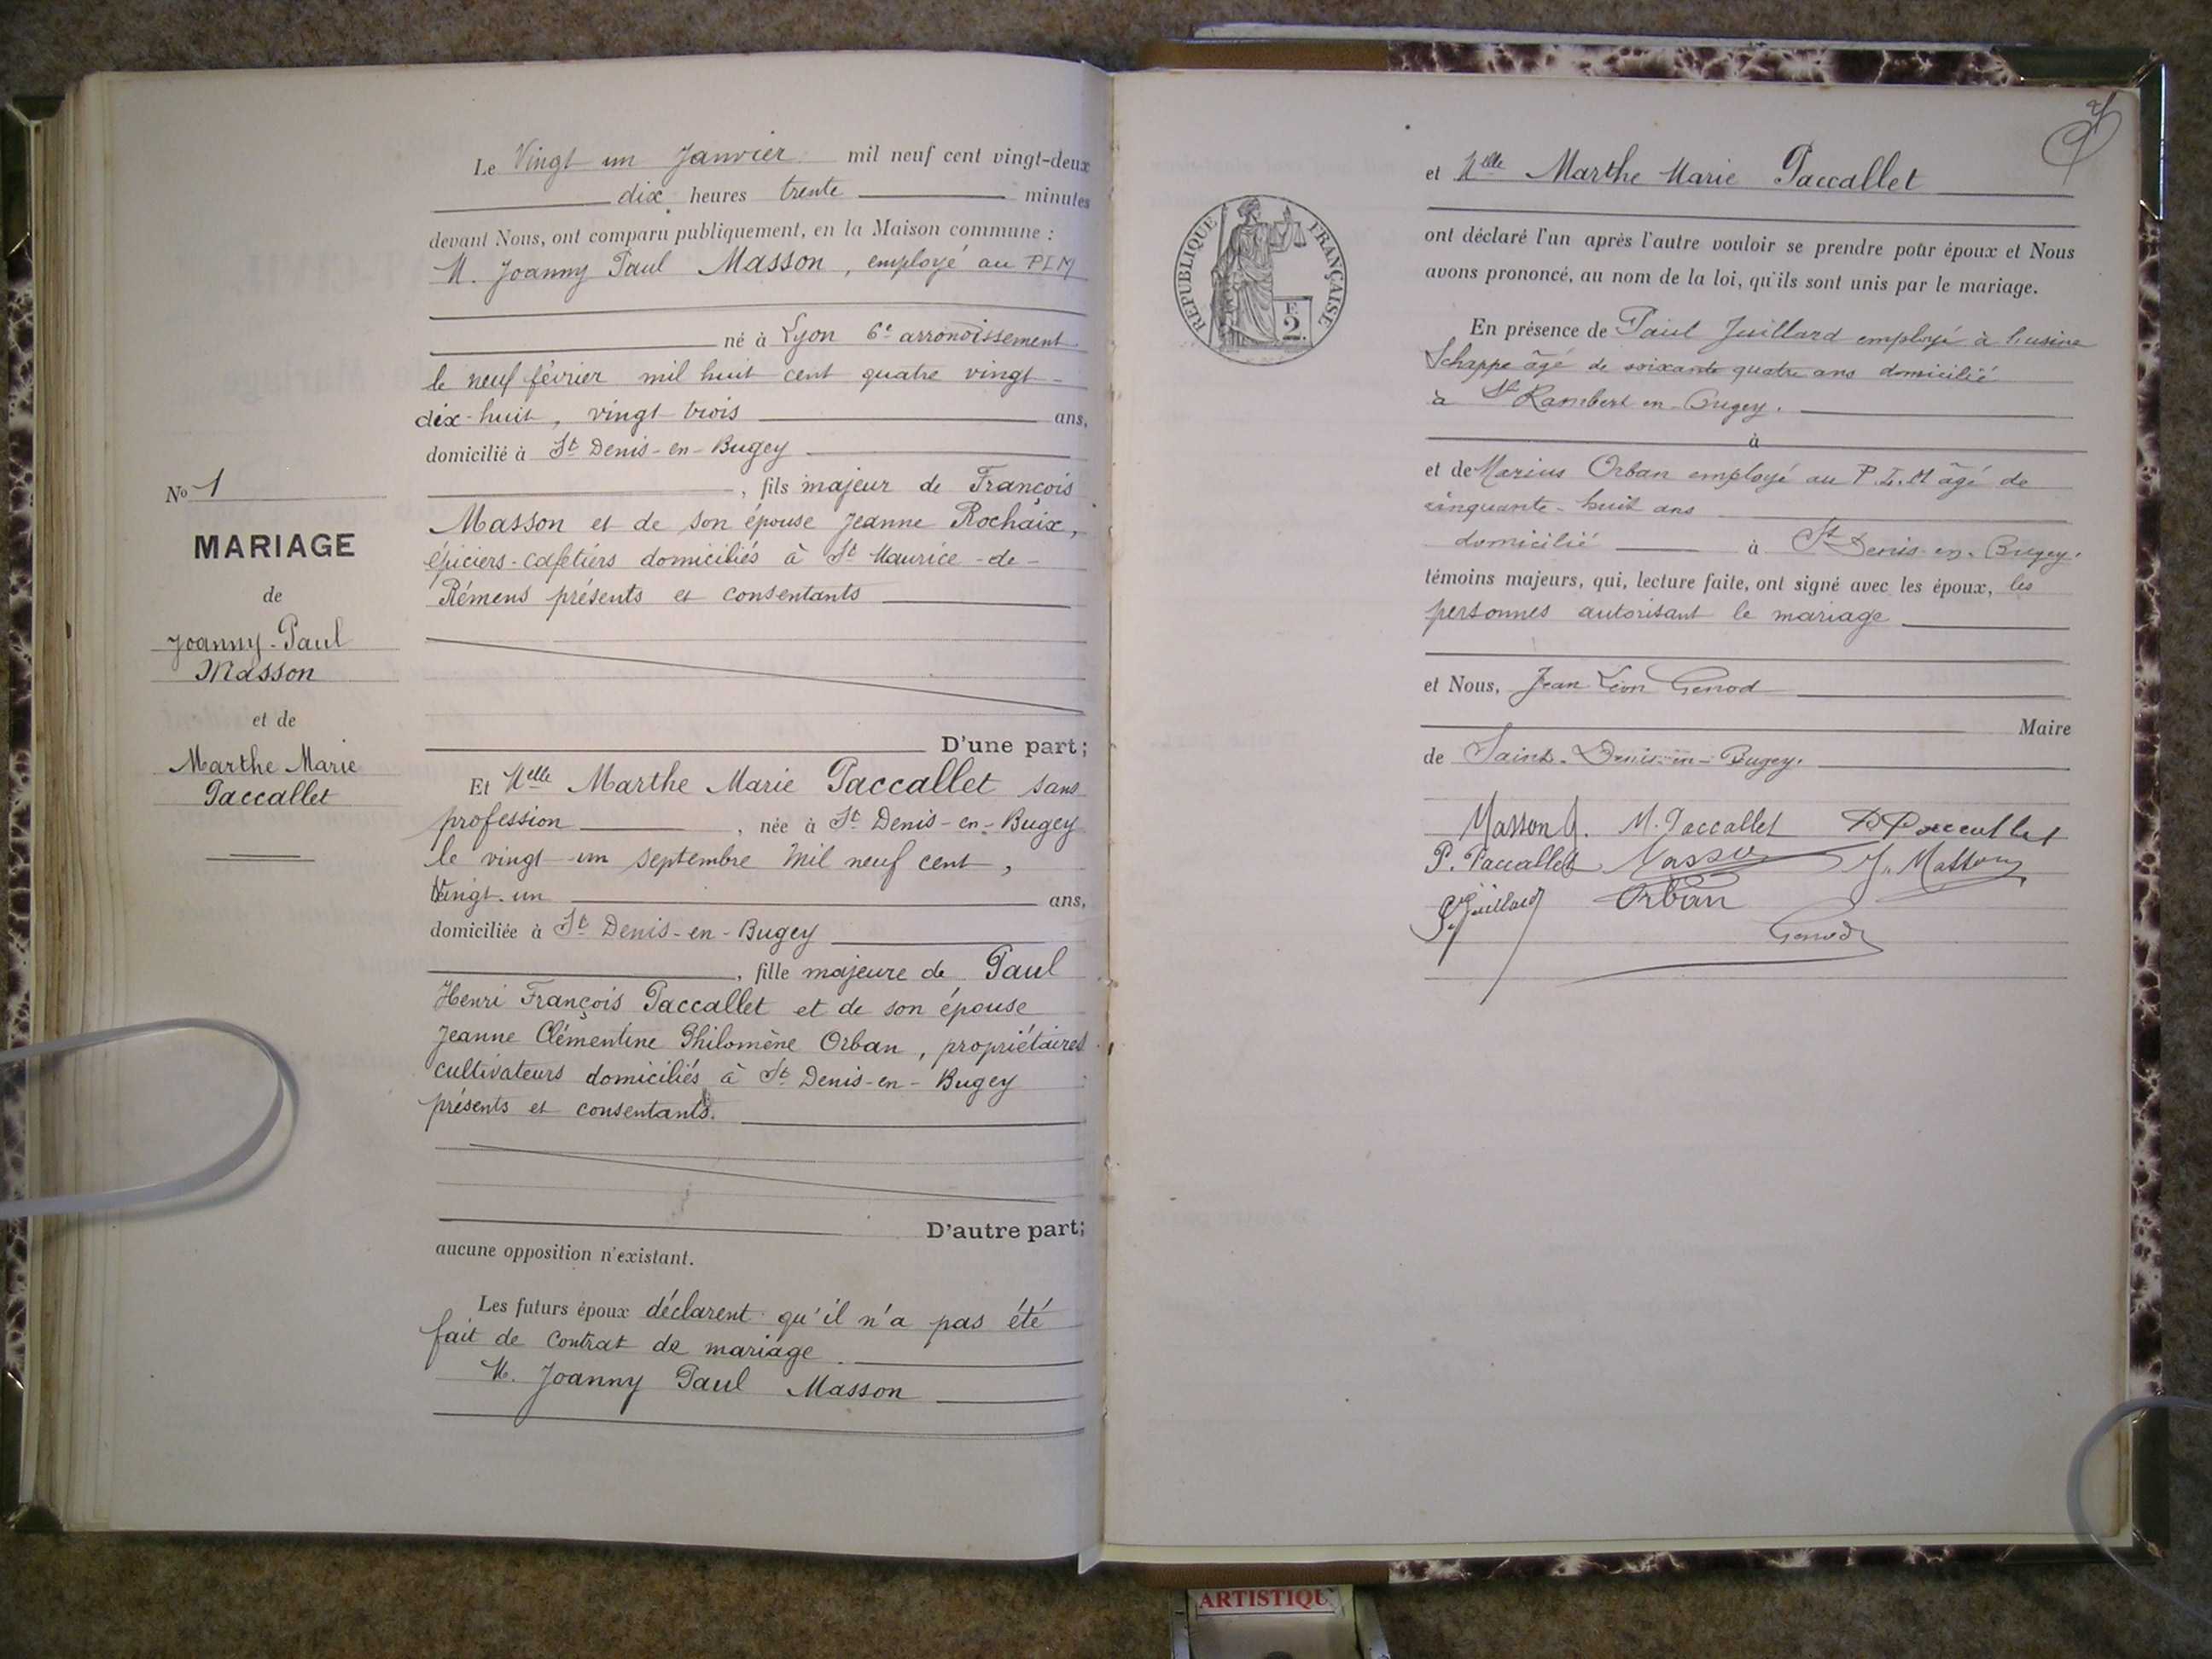 Le Vingt un Janvier mil neuf cent vingt-deux
dix heures trente minutes
devant Nous, ont comparu publiquement, en la Maison commune :
M. Joanny Paul Masson, employé au PLM
né à Lyon 6e arrondissement
le neuf février mil huit cent quatre vingt-
dix-huit, vingt trois ans,
domicilié à St Denis-en-Bugey
, fils majeur de François
Masson et de son épouse Jeanne Rochaix,
épiciers-cafetiers domiciliés à St Maurice-de-
Rémens présents et consentants
D'une part;
Et Melle Marthe Marie Paccallet sans
profession, née à St Denis-en-Bugey
le vingt un septembre mil neuf cent,
Vingt-un ans,
domiciliée à St Denis-en-Bugey
, fille majeure de Paul
Henri François Paccallet et de son épouse
Jeanne Clémentine Philomène Orban, propriétaires
cultivateurs domiciliés à St Denis-en-Bugey
présents et consentants.
D'autre part;
aucune opposition n'existant.
Les futurs époux déclarent qu'il n'a pas été
fait de contrat de mariage
M. Joanny Paul Masson
No 1
MARIAGE
de
Joanny-Paul
Masson
et de
Marthe Marie
Paccallet
et Melle Marthe Marie Paccallet
ont déclaré l'un après l'autre vouloir se prendre pour époux et Nous
avons prononcé, au nom de la loi, qu'ils sont unis par le mariage.
En présence de Paul Juillard employé à l'usine
Schappe âgé de soixante quatre ans domicilié
à St Rambert en-Bugey.
à
et de Marius Orban employé au P.L.M âgé de
cinquante-huit ans
domicilié à St Denis-en-Bugey.
témoins majeurs, qui, lecture faite, ont signé avec les époux, les
personnes autorisant le mariage
et Nous, Jean Léon Genod
Maire
de Saint-Denis-en-Bugey.
Masson J. M. Paccallet P Paccallet
P. Paccallet Masson J. Masson
P. Juillard Orban
Genod
REPUBLIQUE FRANÇAISE
F.
2.
ARTISTIQU